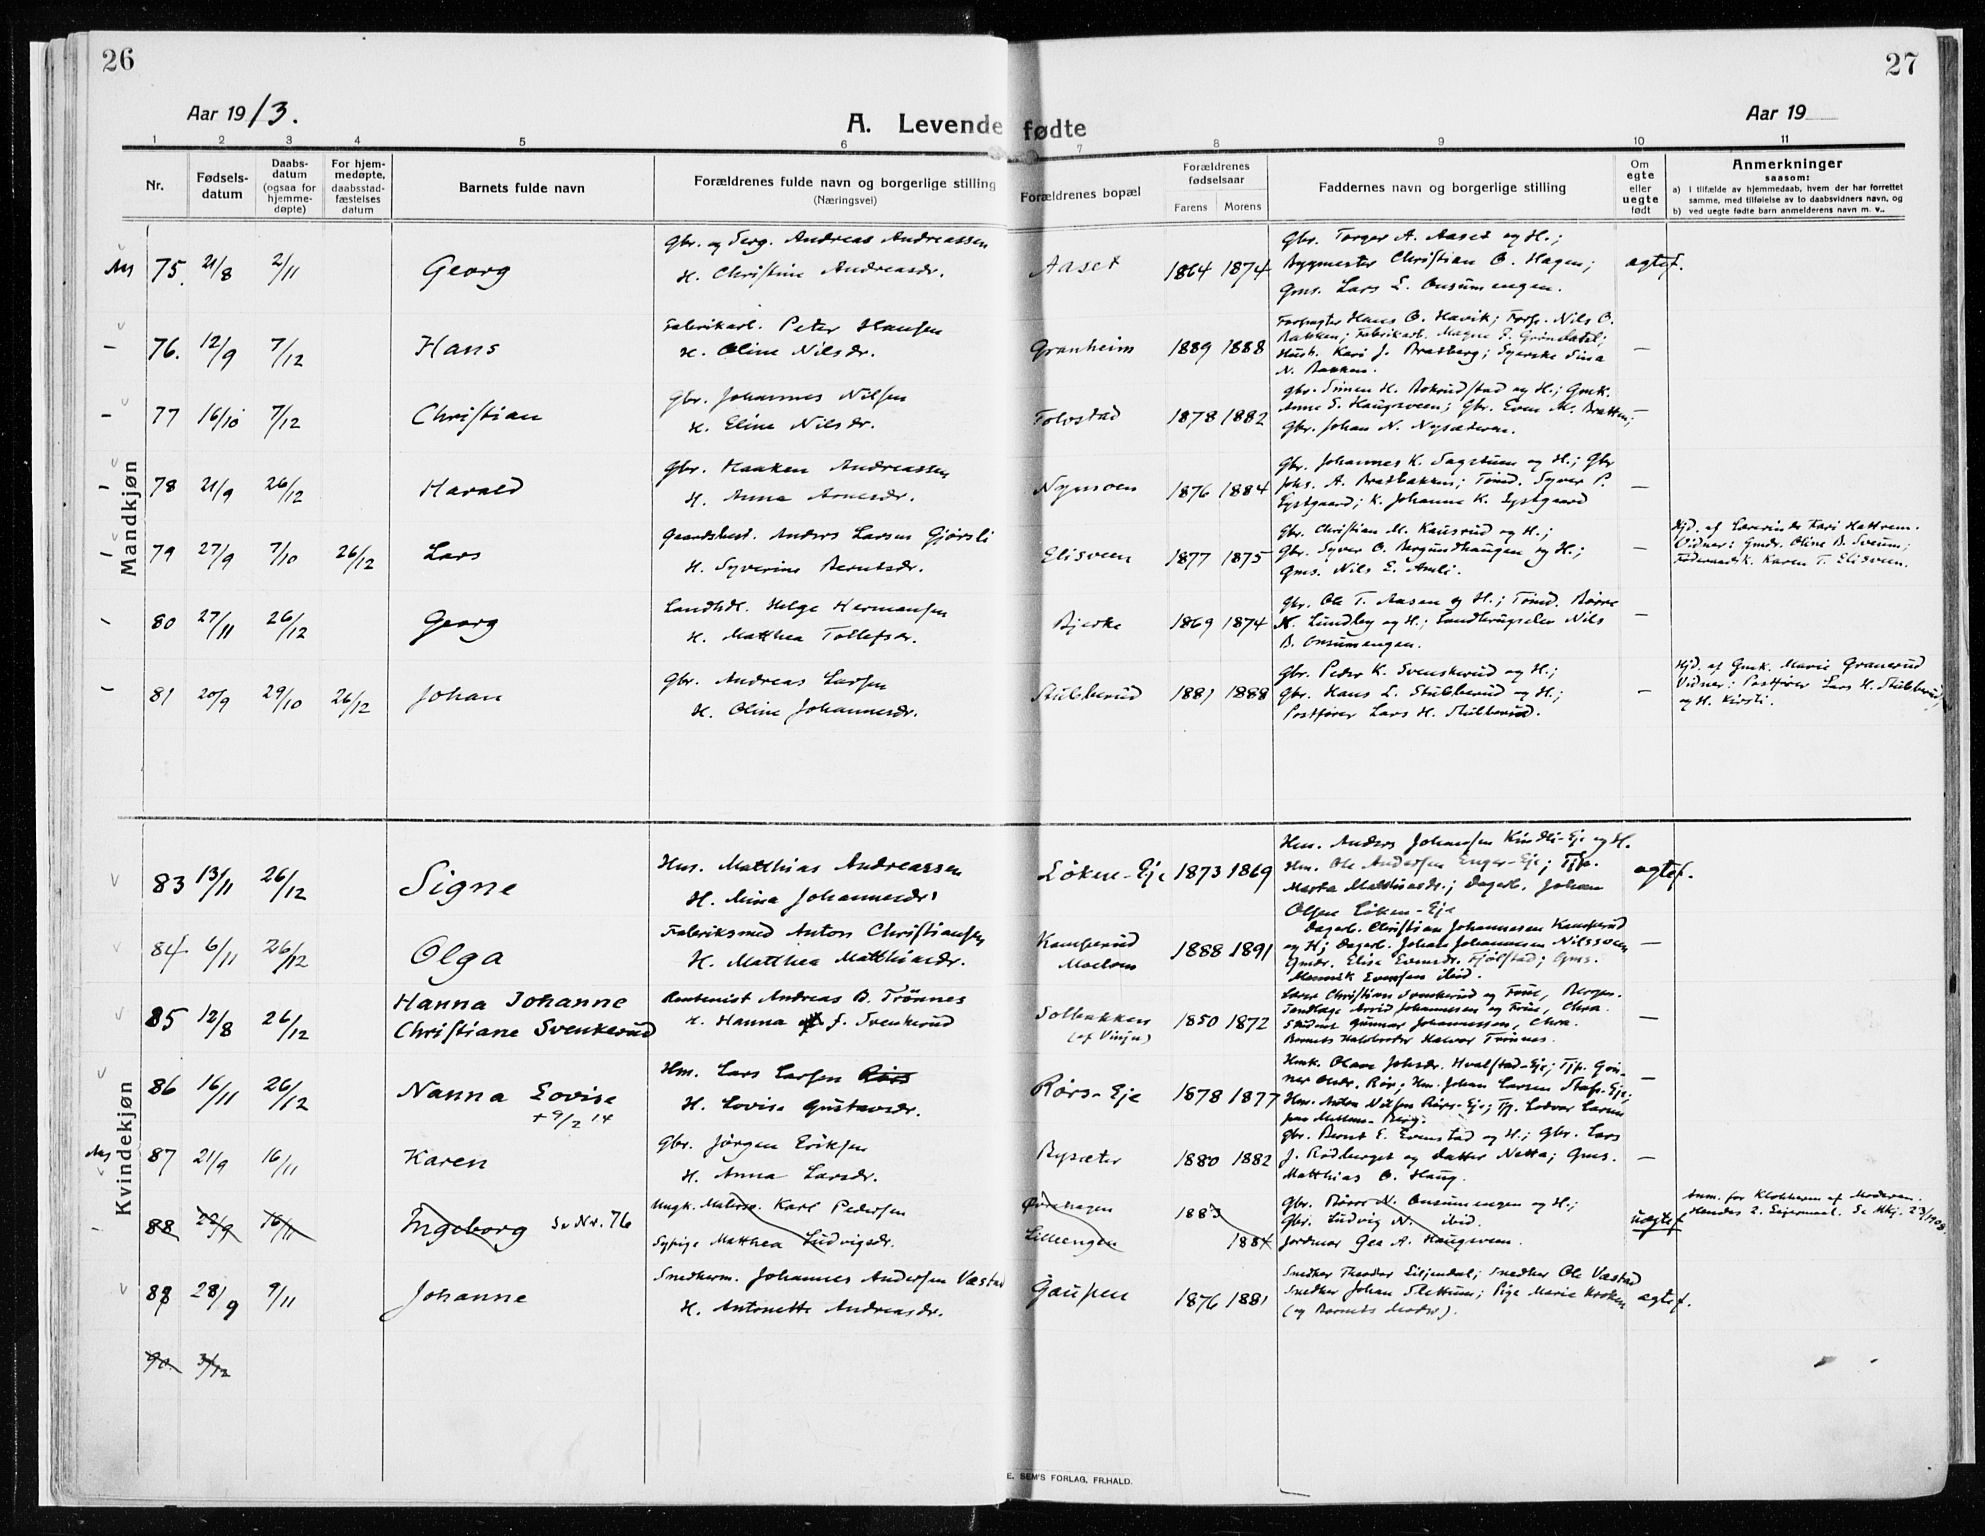 26
27
Aar 1913.
A. Levende fødte
Aar 19
1 2 3 4 5 6 7 8 9 10 11
Nr.
Fødsels-
datum
Daabs-
datum
(ogsaa for
hjemme-
døpte)
For hjem-
medøpte,
daabsstad-
fæstelses
datum
Barnets fulde navn
Forældrenes fulde navn og borgerlige stilling
(Næringsvei)
Forældrenes bopæl
Forældrenes
fødselsaar
Farens Morens
Faddernes navn og borgerlige stilling
Om
egte
eller
uegte
født
Anmerkninger
saasom:
a) I tilfælde av hjemmedaab, hvem der har forrettet
samme, med tilføielse av to daabsvidners navn, og
b) ved uegte fødte barn anmelderens navn m. v..
Mandkjøn
75. 21/8 2/11 Georg
Gbr. og Serg. Andreas Andreassen
H. Christine Andreasdr.
Aaset 1864 1874
Gbr. Torger A. Aaset og H.;
Bygmester Christian O. Hagen;
Gms. Lars E. Onsumengen.
egtef.
76. 12/9 7/12 Hans
Fabrikarb. Peter Hansen
H. Oline Nilsdr.
Granheim 1889 1888
Forpagter Hans O. Havik; Forp. Nils O.
Bakken; Fabrikarb. Magne F. Grøndahl;
Hush. Kari J. Bratberg; Syerske Sina
N. Bakken.
—
77 16/10 7/12 Christian
Gbr. Johannes Nilsen
H. Eline Nilsdr.
Tolvstad 1878 1882
Gbr. Simen H. Bokrudstad og H.; Gmk.
Anne S. Haugsveen; Gbr. Even M. Bratten;
Gbr. Johan N. Nysæteren.
—
78 21/9 26/12 Harald
Gbr. Haaken Andreassen
H. Anna Arnesdr.
Nymoen 1876 1884
Gbr. Johannes K. Sagstuen og H.; Gbr
Johs. A. Bratbakken; Tømd. Syver P.
Lystgaard; K. Johanne K. Lystgaard
—
79 27/9 7/10 26/12 Lars
Gaardsbest. Anders Larsen Gjørsli
H. Syverine Berntsdr.
Elisveen 1877 1875
Gbr. Christian M. Kausrud og H.;
Gbr. Syver O. Bergundhaugen og H.;
Gms. Nils E. Amli.
—
Hjd. af Lærerinde Kari Hattrem.
Vidner: Gmdr. Oline B. Sveum;
Karen T. Elisveen.
80 27/11 26/12 Georg
Landhdl. Helge Hermansen
H. Matthea Tollefsdr.
Bjerke 1869 1874
Gbr. Ole T. Aasen og H.; Tømd. Børre
N. Lundby og H.; Landbrugselev Nils
B. Onsumengen.
—
81 20/9 29/10 26/12 Johan
Gbr. Andreas Larsen
H. Oline Johannesdr.
Stubberud 1881 1888
Gbr. Peder K. Svenskerud og H.;
Gbr. Hans L. Stubberud og H.;
Postfører Lars H. Stubberud.
—
Hjd. af Gmk. Marie Granerud
Vidner: Postfører Lars H. Stubberud,
og H. Kirsti.
Kvindekjøn
83 13/11 26/12 Signe
Hms. Matthias Andreassen
H. Mina Johannesdr.
Løken-Eje 1873 1869
Hm. Anders Johansen Kindli-Eje og H.
Hm. Ole Andersen Enger-Eje; Tjp.
Marta Matthiasdr.; Dagarb. Johan
Olsen Løken-Eje
egtef.
84 6/11 26/12 Olga
Fabriksmed Anton Christiansen
H. Matthea Matthiasdr.
Kamperud
Moelven 1888 1891
Dagarb. Christian Johannesen Kamperud
og H; Dagarb. Johan Johannesen Nilssveen
Gmdr. Elise Evensdr. Fjølstad; Gms.
Evensen ibid.
—
85 12/8 26/12 Hanna Johanne
Christiane Svenkerud
Rentenist Andreas B. Trønnes
H. Hanna f. Svenkerud
Solbakken
(af Vinju) 1850 1872
Christian Svenkerud og Frue, Bergen.
Tandlæge Arvid Johannesen og Frue, Chra.
Student Gunnar Johannessen, Chra.
Barnets Halvbroder Halvor Trønnes.
—
86 16/11 26/12 Nanna Lovise
+ 9/2 14
Hm. Lars Larsen Rørs
H. Lovise Gustavsdr.
Rørs-Eje 1878 1877
Hmk. Olave Johsdr. Hvalstad-Eje; Tjp. Gun-
nor Andr. Rør; Hm. Johan Larsen Stafs-Eje;
Hm. Anton Nilsen Rørs-Eje; Tj. Lodvar Larsen
Berg.
—
87 21/9 16/11 Karen
Gbr. Jørgen Eriksen
H. Anna Larsdr.
Bysæter 1880 1882
Gbr. Bernt E. Evenstad og H.; Gbr. Lars
J. Rødberget og datter Netta; Gms.
Matthias O. Haug.
—
88 22/9 16/11 Ingeborg Se Nr. 76
Ungk. Karl Pedersen
Sypige Matthea Ludvigsdr.
Øvrehagen
Lilleengen
1883
1884
Gbr. Børre N. Onsumengen og H.;
Gbr. Ludvig N. ibid.
Jordmor Gea A. Haugsveen.
uegtef
Anm. for Klokkeren af Moderen.
Hendes 2. Leiermaal. Se Mkj. 23/1908.
88 28/9 9/11 Johanne
Snedkerm. Johannes Andersen Væstad
H. Antonette Andreasdr.
Gaupen 1876 1881
Snedker Theodor Liljendal; Snedker Ole Væstad
Snedker Johan Slettum; Pige Marie Kroken
(og Barnets Moder).
egtef.
90. 3/12
E. SEM'S FORLAG, FR.HALD.